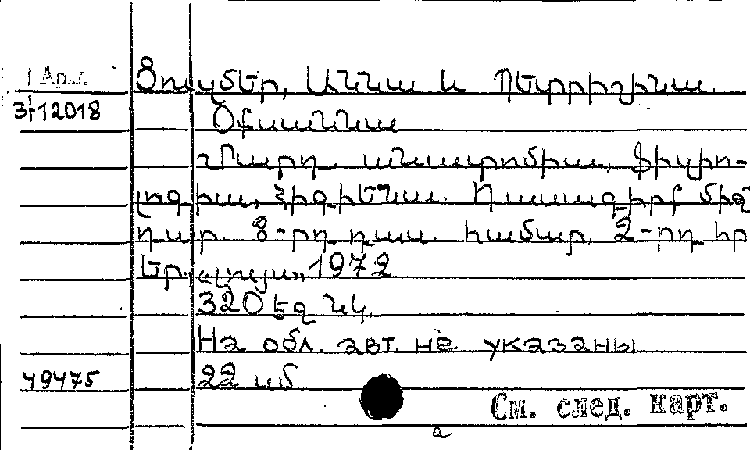 1 Арм.
Ցուզմեր, Աննա և Պետրիշինա
3112018
Օքսաննա
Մարդ. անատոմիա, ֆիզիո-
լոգիա, հիգիենա. Դասագիրք միջ
դպր. 8-րդ դաս. համար. 2-րդ հր
Եր. «Լույս», 1972
320 էջ նկ.
На обл. авт. не указаны
49475
22 կմ
См. след. карт.
а